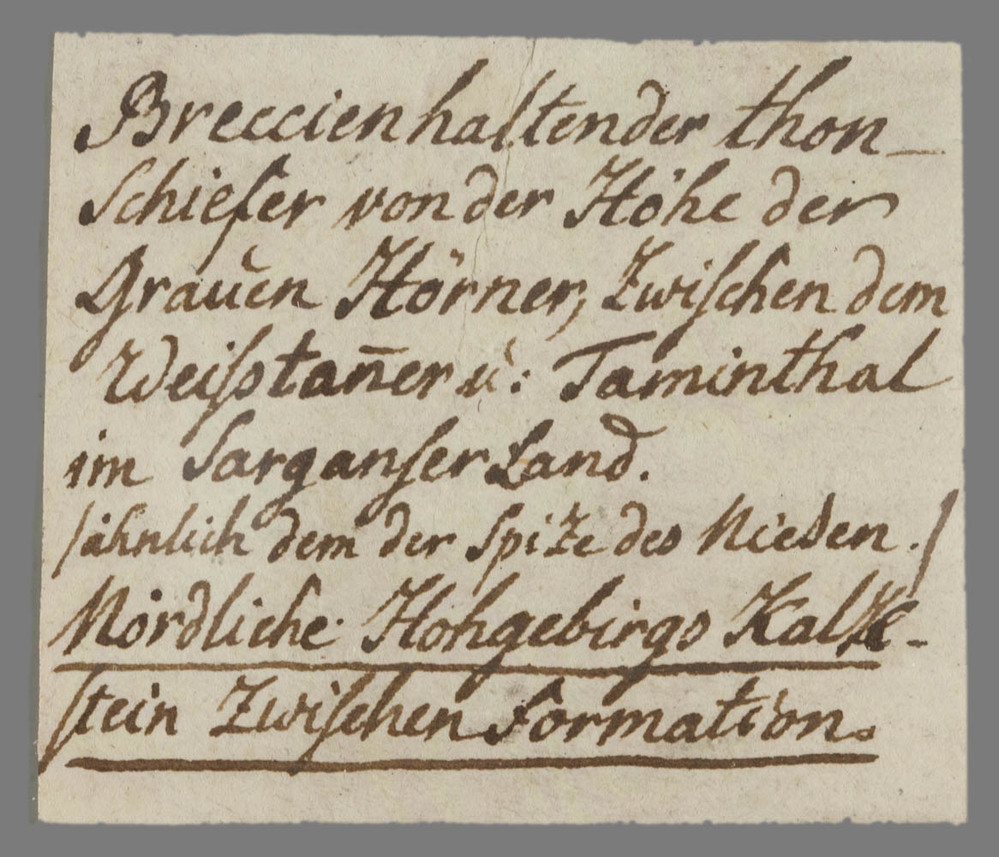 Breccien haltender thon-
Schiefer von der Höhe der
Grauen Hörner, Zwischen dem
Weisstan̄er u: Taminthal
im Sarganser Land.
/ähnlich dem der Spize des Niesen./
Nördliche Hohgebirgs Kalk-
stein Zwischen Formation.